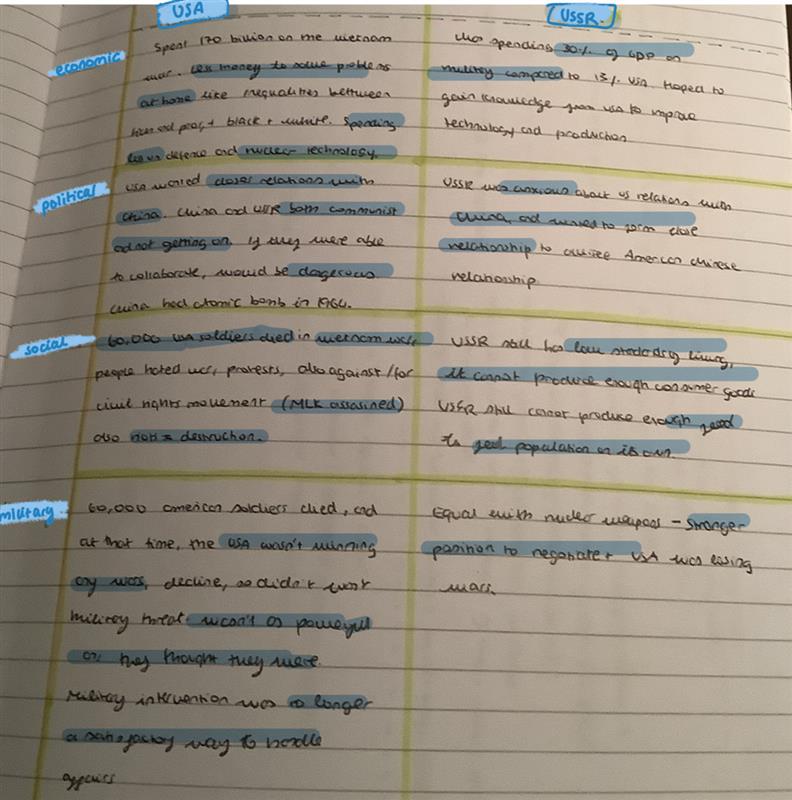 USA
USSR.
economic
Spent 170 billion on the vietnam
war. Less money to solve problems
at home like inequalities between
and poor, + black + white. Spending
less on defence and nuclear technology.
Was spending 30% of GDP on
military compared to 13% USA. Hoped to
gain knowledge from USA to improve
technology and production
political
USA wanted closer relations with
China. China and USSR both communist
and not getting on. If they were able
to collaborate, would be dangerous.
China had atomic bomb in 1964.
USSR was anxious about US relations with
China, and wanted to form close
relationship to American Chinese
relationship.
social
60,000 USA soldiers died in vietnam war,
people hated war, protests, also against/for
civil rights movement (MLK assasined)
also riots = destruction.
USSR still has low living,
it cannot produce enough consumer goods
USSR still cannot produce enough
to population on its own.
military
60,000 american soldiers died, and
at that time, the USA wasn't winning
any wars, decline, so didn't want
military threat. wasn't as powerful
as they thought they were.
Military intervention was no longer
a satisfactory way to handle
affairs
Equal with nuclear weapons - stronger
position to negotiate + USA was losing
wars.